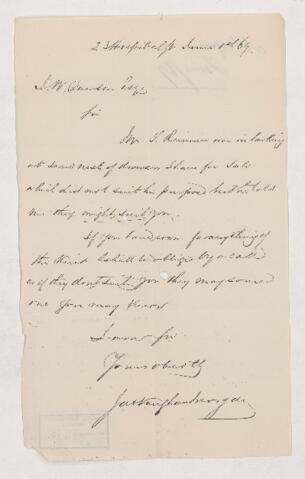 23 Hospital St June 1st 69.
J. W. Dawson Esq
Sir
Mr T. Rimmer was in looking
at some nest of drawers I have for Sale
which did not suit his purpose but he told
me they might suit you.
If you have room for anything of
the kind I shall be obliged by a call
as if they don't suit you they may some
one you may know
I am Sir
Yours obedtly